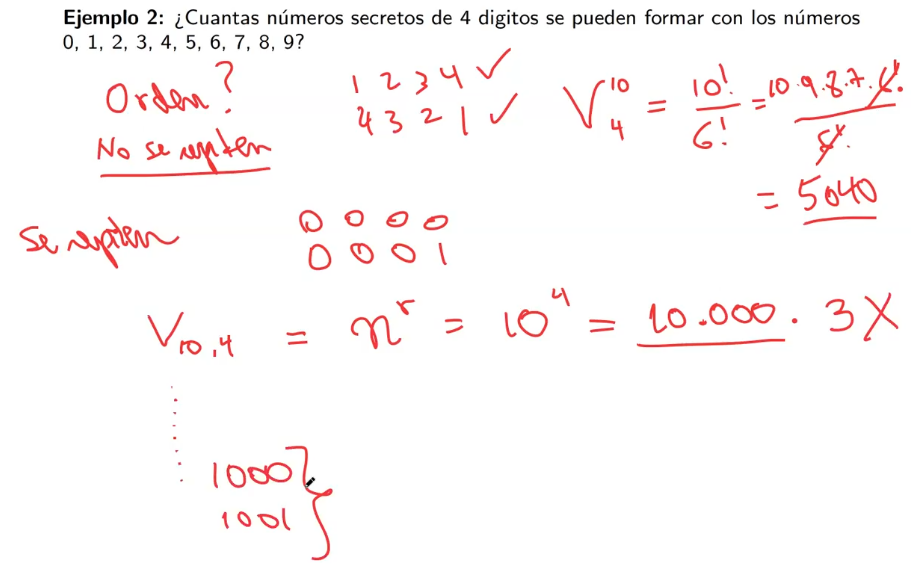 Ejemplo 2: ¿Cuantas números secretos de 4 digitos se pueden formar con los números
0, 1, 2, 3, 4, 5, 6, 7, 8, 9?
Orden?
No se repiten
1 2 3 4 ✓
4 3 2 1 ✓
V₄¹⁰ = 10!/6! = 10·9·8·7·6!/6!
= 5040
Se repiten
0 0 0 0
0 0 0 1
V₁₀,₄ = nʳ = 10⁴ = 10.000. 3X
1000
1001